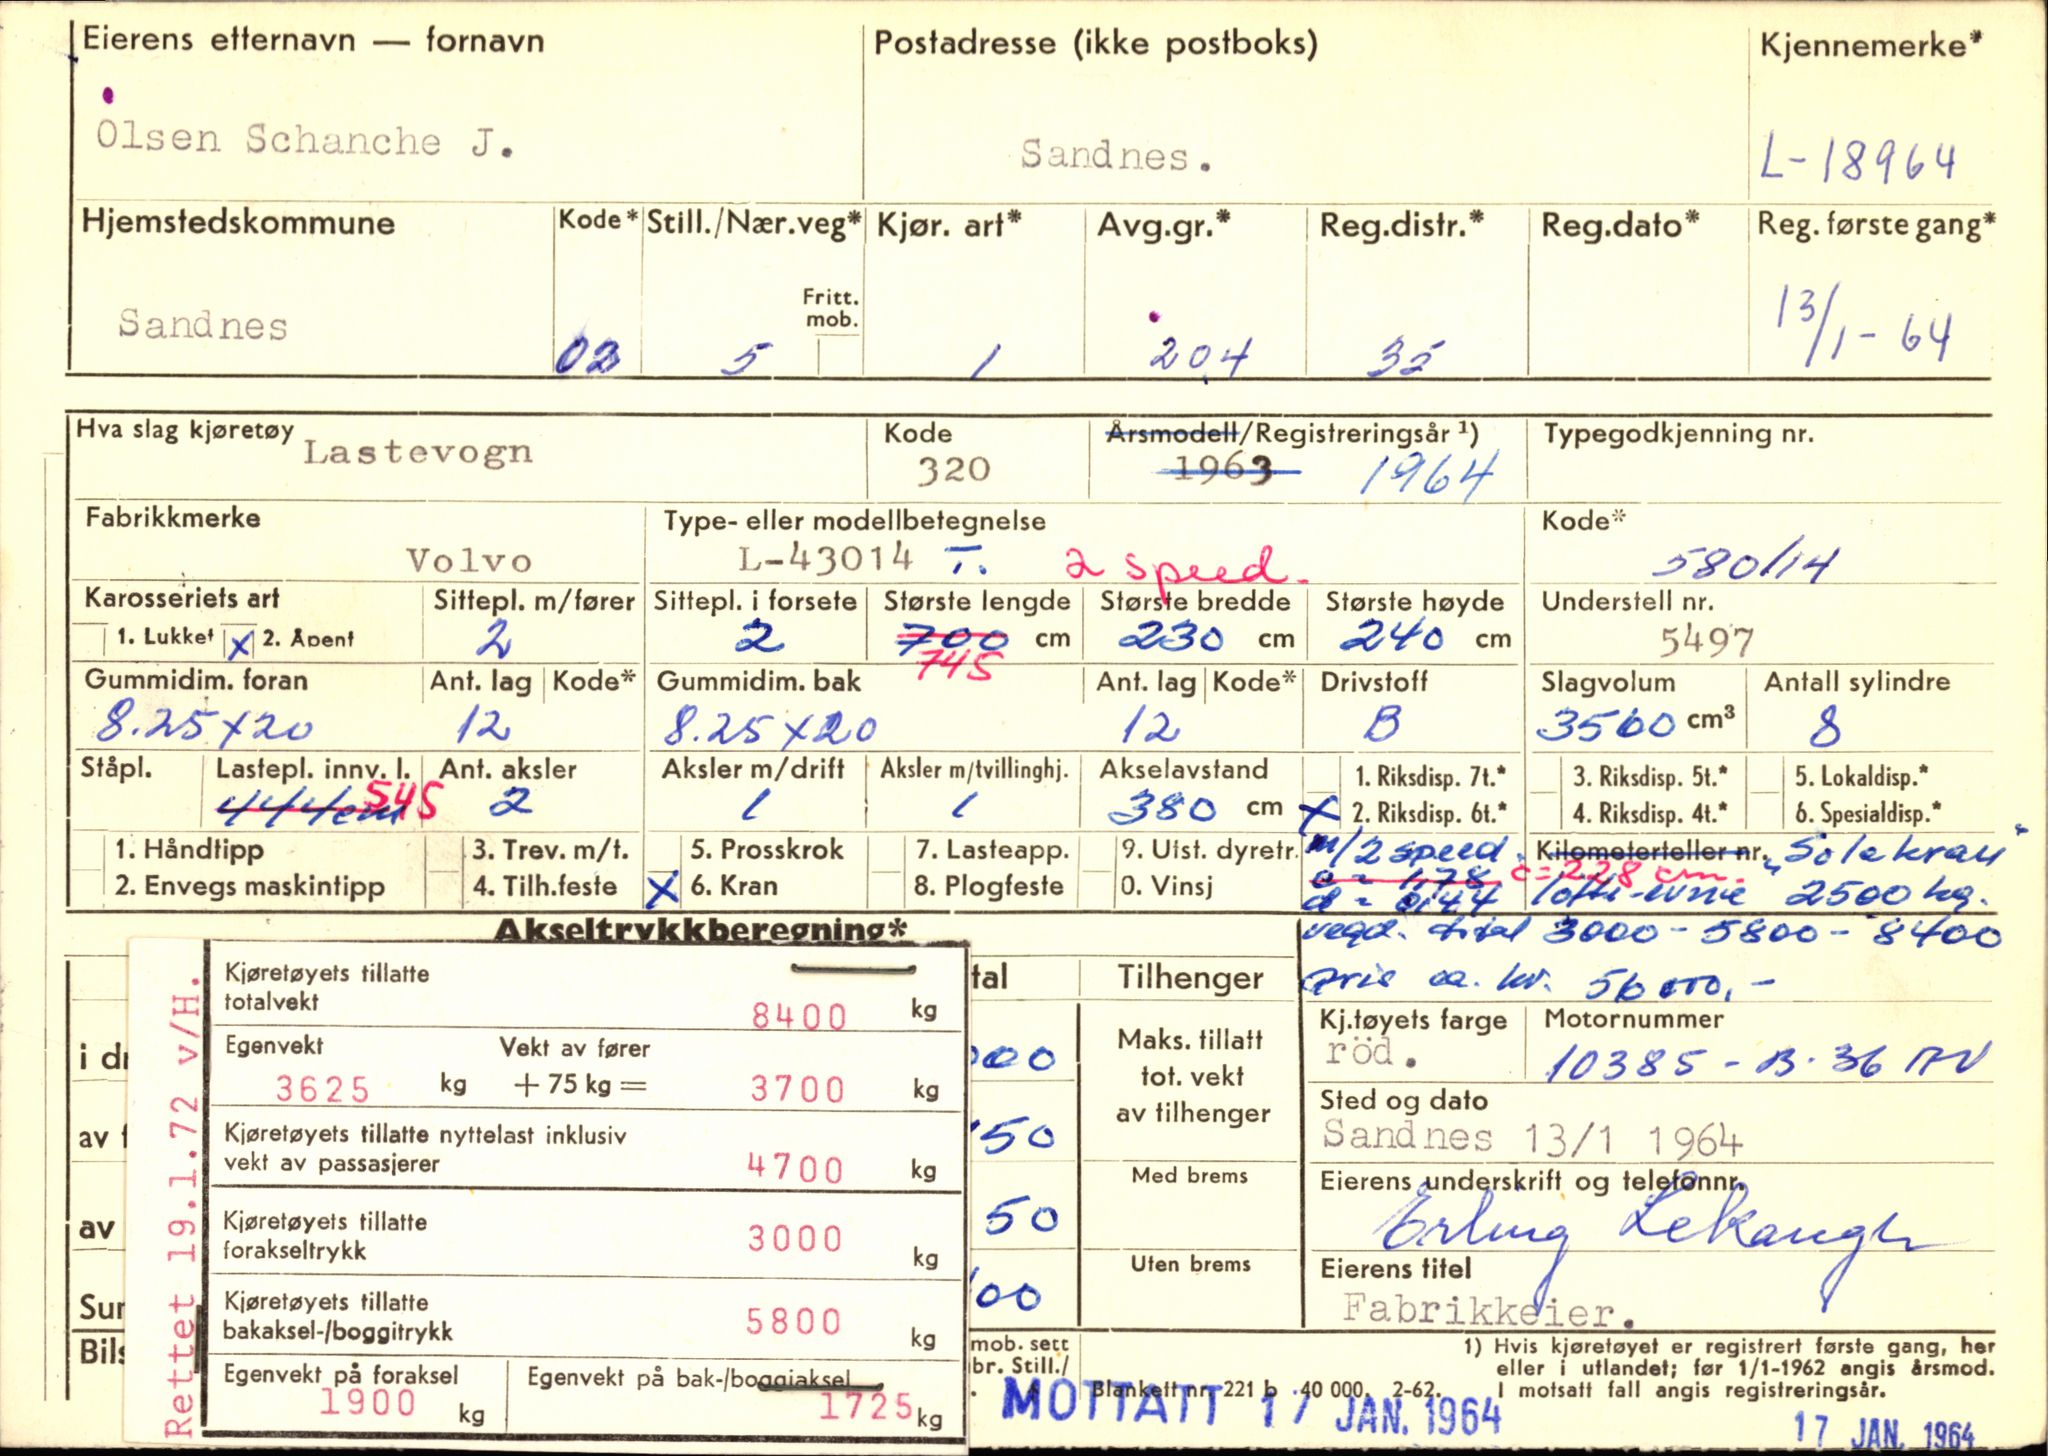 Eierens etternavn — fornavn Postadresse (ikke postboks) Kjennemerke*
Olsen Schanche J. Sandnes. L-18964
Hjemstedskommune Kode* Still./Nær.veg* Kjør. art* Avg.gr.* Reg.distr.* Reg.dato* Reg. første gang*
Fritt. mob.
Sandnes 02 5 1 204 35 13/1-64
Hva slag kjøretøy Lastevogn Kode Årsmodell/Registreringsår ¹) Typegodkjenning nr.
320 1963 1964
Fabrikkmerke Type- eller modellbetegnelse Kode*
Volvo L-43014 T. 2 speed. 580/14
Karosseriets art Sittepl. m/fører Sittepl. i forsete Største lengde Største bredde Største høyde Understell nr.
1. Lukket x 2. Åpent 2 2 700 cm 230 cm 240 cm 5497
745
Gummidim. foran Ant. lag Kode* Gummidim. bak Ant. lag Kode* Drivstoff Slagvolum Antall sylindre
8.25x20 12 8.25x20 12 B 3560 cm³ 8
Ståpl. Lastepl. innv. l. Ant. aksler Aksler m/drift Aksler m/tvillinghj. Akselavstand 1. Riksdisp. 7t.* 3. Riksdisp. 5t.* 5. Lokaldisp.*
444cm 545 2 1 1 380 cm x 2. Riksdisp. 6t.* 4. Riksdisp. 4t.* 6. Spesialdisp.*
1. Håndtipp 3. Trev. m/t. 5. Prosskrok 7. Lasteapp. 9. Utst. dyretr. m/2 speed. Kilometerteller nr. "Solekran"
2. Envegs maskintipp 4. Tilh.feste x 6. Kran 8. Plogfeste 0. Vinsj a = 1,78 c=228 cm.
d = 0,44 2500 kg.
Akseltrykkberegning* vegd. 3000-5800-8400
pris ca. kr. 56000,-
Kjøretøyets tillatte totalvekt 8400 kg
Egenvekt Vekt av fører
3625 kg + 75 kg = 3700 kg
Kjøretøyets tillatte nyttelast inklusiv
vekt av passasjerer 4700 kg
Kjøretøyets tillatte
forakseltrykk 3000 kg
Kjøretøyets tillatte
bakaksel-/boggitrykk 5800 kg
Egenvekt på foraksel Egenvekt på bak-/boggiaksel
1900 kg 1725 kg
Rettet 19.1.72 v/H.
i dr
av f
av
Sur
Bils
tal
000
50
50
00
mob. sett
br. Still./
Tilhenger
Maks. tillatt
tot. vekt
av tilhenger
Med brems
Uten brems
Kj.tøyets farge Motornummer
röd. 10385-B.36 AV
Sted og dato
Sandnes 13/1 1964
Eierens underskrift og telefonnr.
Erling
Eierens titel
Fabrikkeier.
1) Hvis kjøretøyet er registrert første gang, her
eller i utlandet; før 1/1-1962 angis årsmod.
I motsatt fall angis registreringsår.
Blankett nr. 221 b 40 000. 2-62.
MOTTATT 17 JAN. 1964
17 JAN. 1964